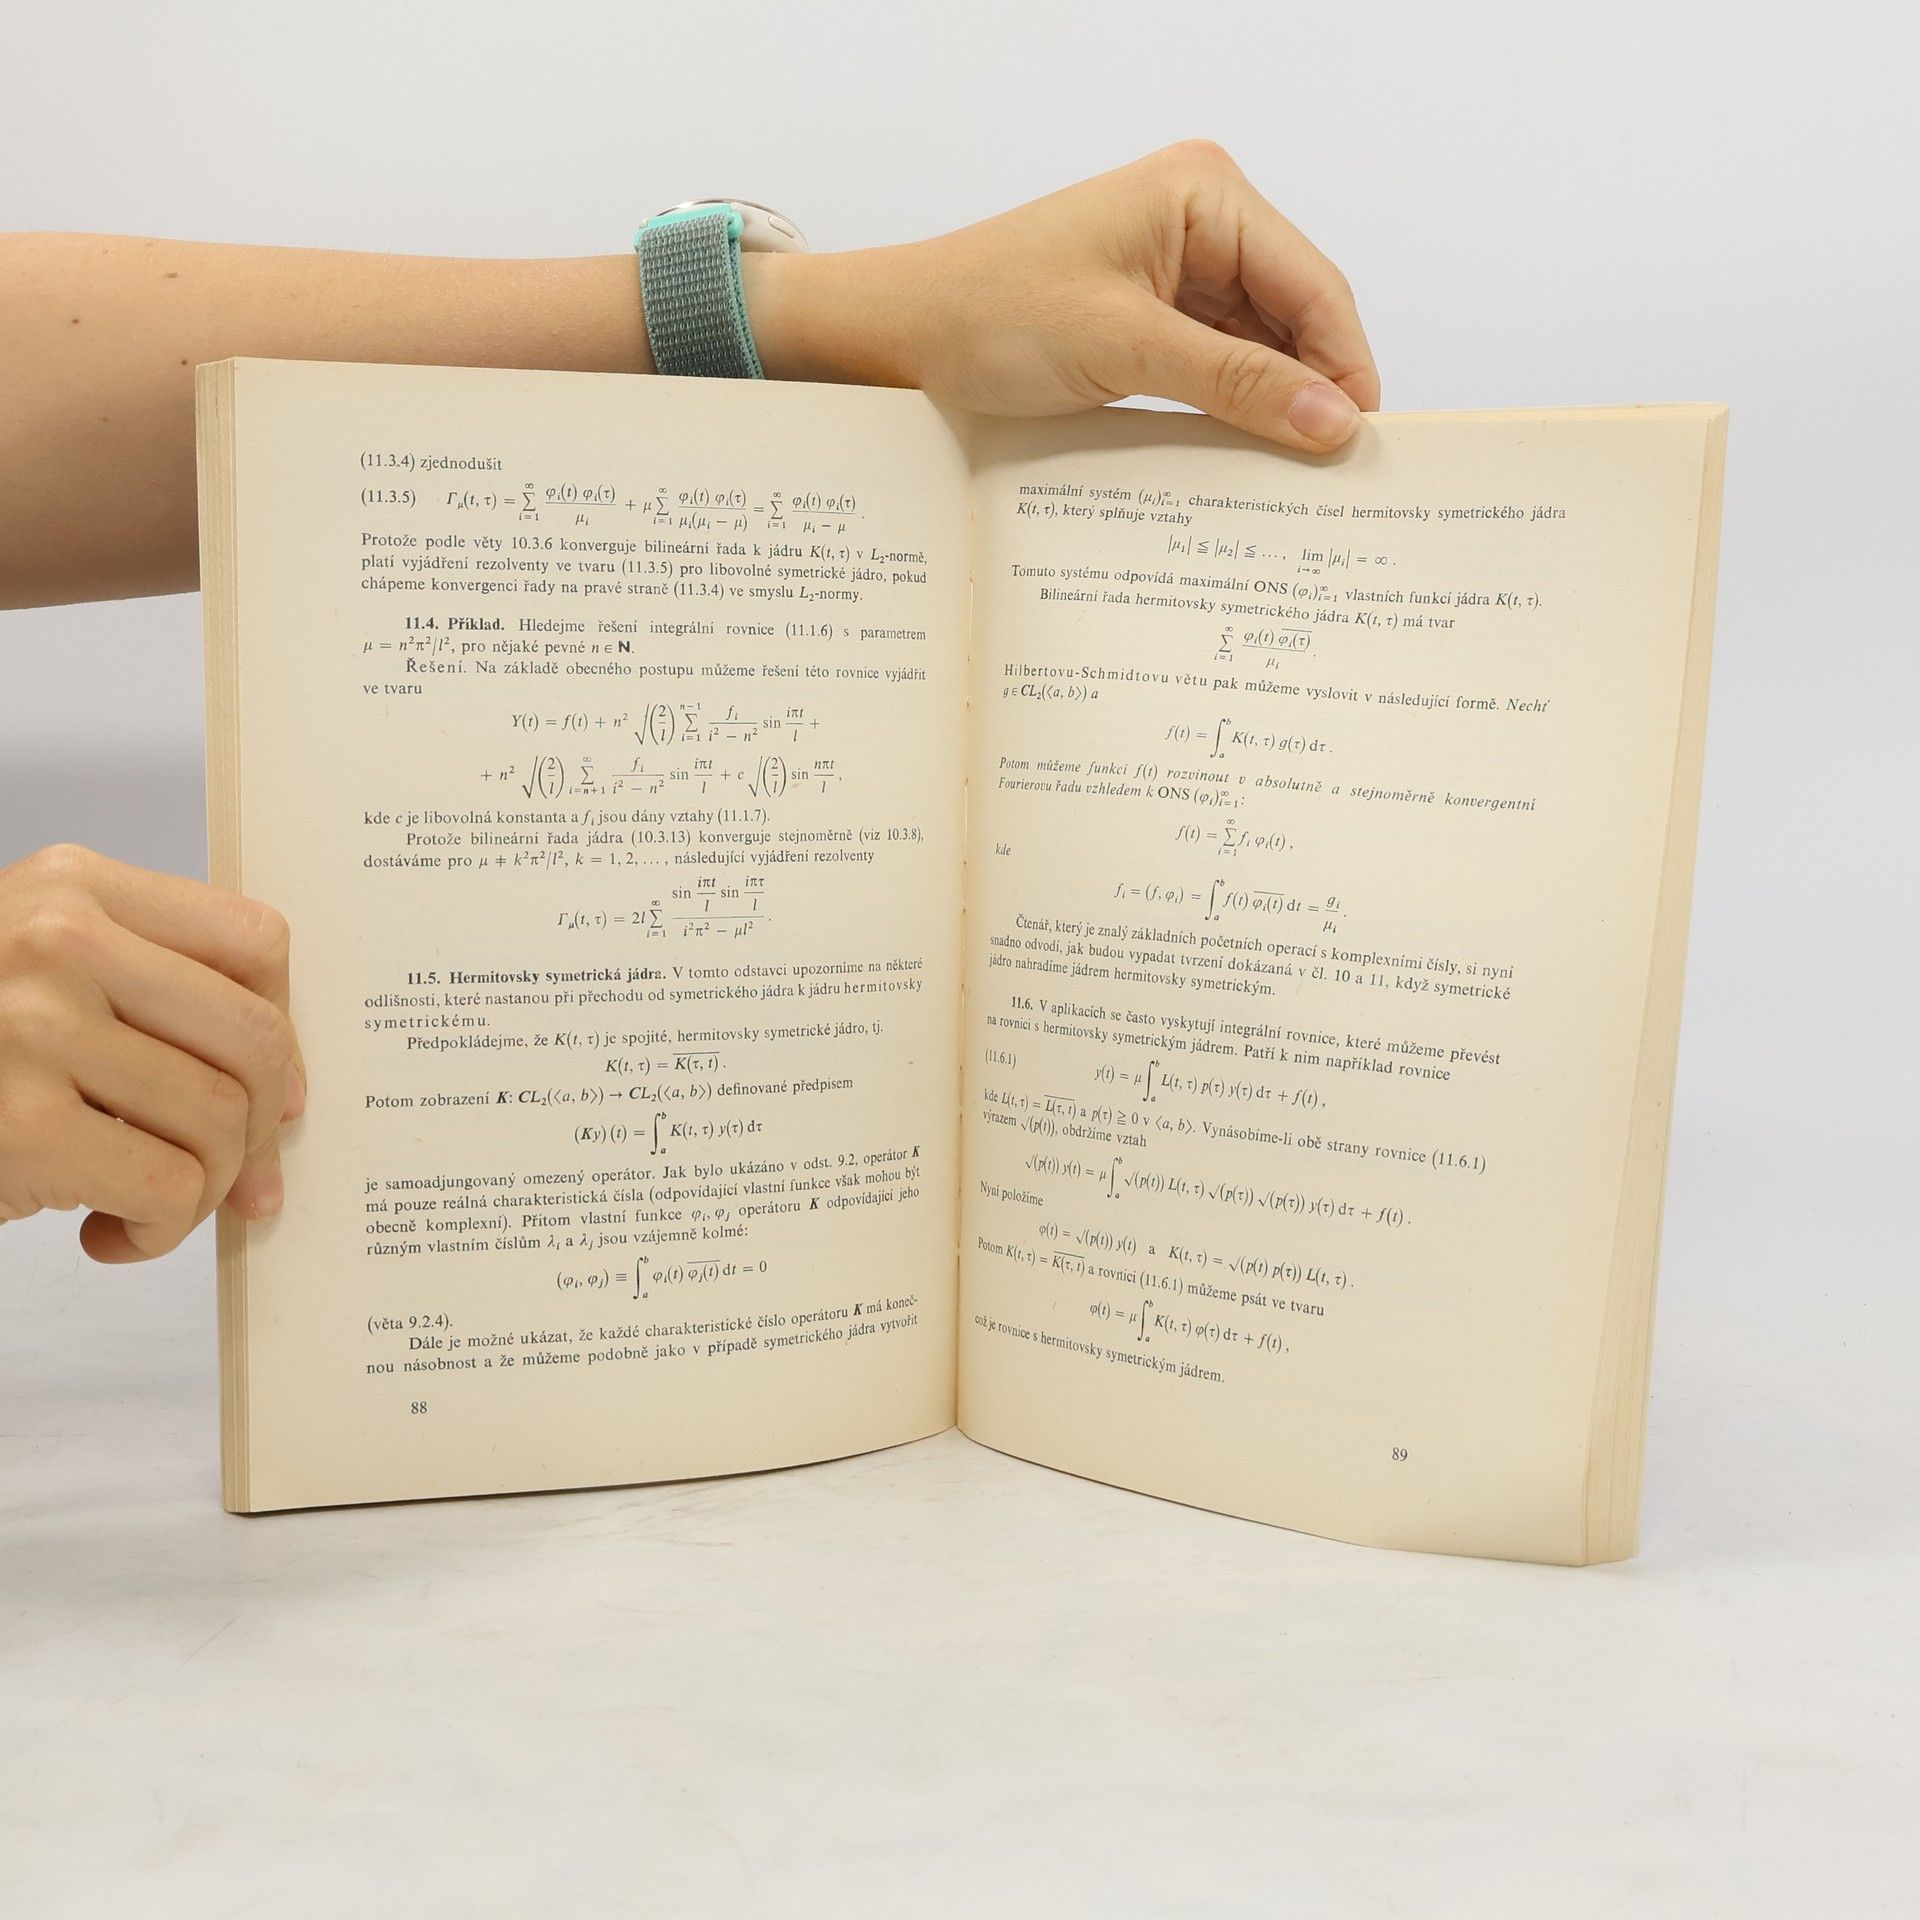 (11.3.4) zjednodušit
(11.3.5) Γ_μ(t, τ) = ∑_{i=1}^{∞} φ_i(t) φ_i(τ) / μ_i + μ ∑_{i=1}^{∞} φ_i(t) φ_i(τ) / μ_i(μ_i − μ) = ∑_{i=1}^{∞} φ_i(t) φ_i(τ) / μ_i − μ .
Protože podle věty 10.3.6 konverguje bilineární řada k jádru K(t, τ) v L₂-normě,
platí vyjádření rezolventy ve tvaru (11.3.5) pro libovolné symetrické jádro, pokud
chápeme konvergenci řady na pravé straně (11.3.4) ve smyslu L₂-normy.
11.4. Příklad. Hledejme řešení integrální rovnice (11.1.6) s parametrem
μ = n²π²/l², pro nějaké pevné n ∈ N.
Řešení. Na základě obecného postupu můžeme řešení této rovnice vyjádřit
ve tvaru
Y(t) = f(t) + n² √(2/l) ∑_{i=1}^{n−1} f_i / i² − n² sin iπt/l +
+ n² √(2/l) ∑_{i=n+1}^{∞} f_i / i² − n² sin iπt/l + c √(2/l) sin nπt/l ,
kde c je libovolná konstanta a f_i jsou dány vztahy (11.1.7).
Protože bilineární řada jádra (10.3.13) konverguje stejnoměrně (viz 10.3.8),
dostáváme pro μ ≠ k²π²/l², k = 1, 2, ..., následující vyjádření rezolventy
Γ_μ(t, τ) = 2l ∑_{i=1}^{∞} sin iπt/l sin iπτ/l / i²π² − μl² .
11.5. Hermitovsky symetrická jádra. V tomto odstavci upozorníme na některé
odlišnosti, které nastanou při přechodu od symetrického jádra k jádru hermitovsky
symetrickému.
Předpokládejme, že K(t, τ) je spojité, hermitovsky symetrické jádro, tj.
K(t, τ) = \overline{K(τ, t)} .
Potom zobrazení K: CL₂(⟨a, b⟩) → CL₂(⟨a, b⟩) definované předpisem
(Ky) (t) = ∫_a^b K(t, τ) y(τ) dτ
je samoadjungovaný omezený operátor. Jak bylo ukázáno v odst. 9.2, operátor K
má pouze reálná charakteristická čísla (odpovídající vlastní funkce však mohou být
obecně komplexní). Přitom vlastní funkce φ_i, φ_j operátoru K odpovídající jeho
různým vlastním číslům λ_i a λ_j jsou vzájemně kolmé:
(φ_i, φ_j) ≡ ∫_a^b φ_i(t) \overline{φ_j(t)} dt = 0
(věta 9.2.4).
Dále je možné ukázat, že každé charakteristické číslo operátoru K má koneč-
nou násobnost a že můžeme podobně jako v případě symetrického jádra vytvořit
88
maximální systém (μ_i)_{i=1}^{∞} charakteristických čísel hermitovsky symetrického jádra
K(t, τ), který splňuje vztahy
|μ₁| ≦ |μ₂| ≦ ..., lim_{i→∞} |μ_i| = ∞ .
Tomuto systému odpovídá maximální ONS (φ_i)_{i=1}^{∞} vlastních funkcí jádra K(t, τ).
Bilineární řada hermitovsky symetrického jádra K(t, τ) má tvar
∑_{i=1}^{∞} φ_i(t) \overline{φ_i(τ)} / μ_i .
Hilbertovu-Schmidtovu větu pak můžeme vyslovit v následující formě. Nechť
g ∈ CL₂(⟨a, b⟩) a
f(t) = ∫_a^b K(t, τ) g(τ) dτ .
Potom můžeme funkci f(t) rozvinout v absolutně a stejnoměrně konvergentní
Fourierovu řadu vzhledem k ONS (φ_i)_{i=1}^{∞}:
f(t) = ∑_{i=1}^{∞} f_i φ_i(t) ,
kde
f_i = (f, φ_i) = ∫_a^b f(t) \overline{φ_i(t)} dt = g_i / μ_i .
Čtenář, který je znalý základních početních operací s komplexními čísly, si nyní
snadno odvodí, jak budou vypadat tvrzení dokázaná v čl. 10 a 11, když symetrické
jádro nahradíme jádrem hermitovsky symetrickým.
11.6. V aplikacích se často vyskytují integrální rovnice, které můžeme převést
na rovnici s hermitovsky symetrickým jádrem. Patří k nim například rovnice
(11.6.1) y(t) = μ ∫_a^b L(t, τ) p(τ) y(τ) dτ + f(t) ,
kde L(t, τ) = \overline{L(τ, t)} a p(τ) ≧ 0 v ⟨a, b⟩. Vynásobíme-li obě strany rovnice (11.6.1)
výrazem √(p(t)), obdržíme vztah
√(p(t)) y(t) = μ ∫_a^b √(p(t)) L(t, τ) √(p(τ)) √(p(τ)) y(τ) dτ + f(t) .
Nyní položíme
φ(t) = √(p(t)) y(t) a K(t, τ) = √(p(t) p(τ)) L(t, τ) .
Potom K(t, τ) = \overline{K(τ, t)} a rovnici (11.6.1) můžeme psát ve tvaru
φ(t) = μ ∫_a^b K(t, τ) φ(τ) dτ + f(t) ,
což je rovnice s hermitovsky symetrickým jádrem.
89